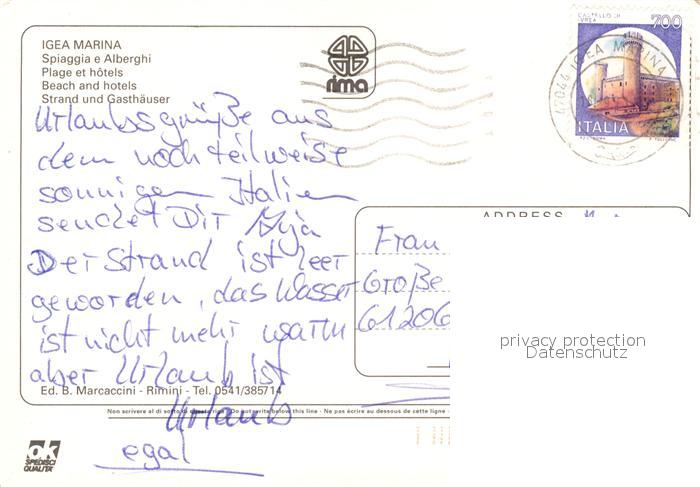 IGEA MARINA
Spiaggia e Alberghi
Plage et hôtels
Beach and hotels
Strand und Gasthäuser
rima
CASTELLO DI IVREA
700
ITALIA
47044 IGEA MARINA
Urlaubsgrüße aus
dem noch teilweise
sonnigen Italien
sendet Dir
Der Strand ist leer
geworden, das Wasser
ist nicht mehr warm
aber Urlaub ist
Urlaub
egal
ADDRESS
Frau
Große
61206
privacy protection
Datenschutz
Ed. B. Marcaccini - Rimini - Tel. 0541/385714
Non scrivere al di sotto di questa riga - Do not write below this line - Ne pas écrire au dessous de cette ligne
ok
SPEDISCI
QUALITA'